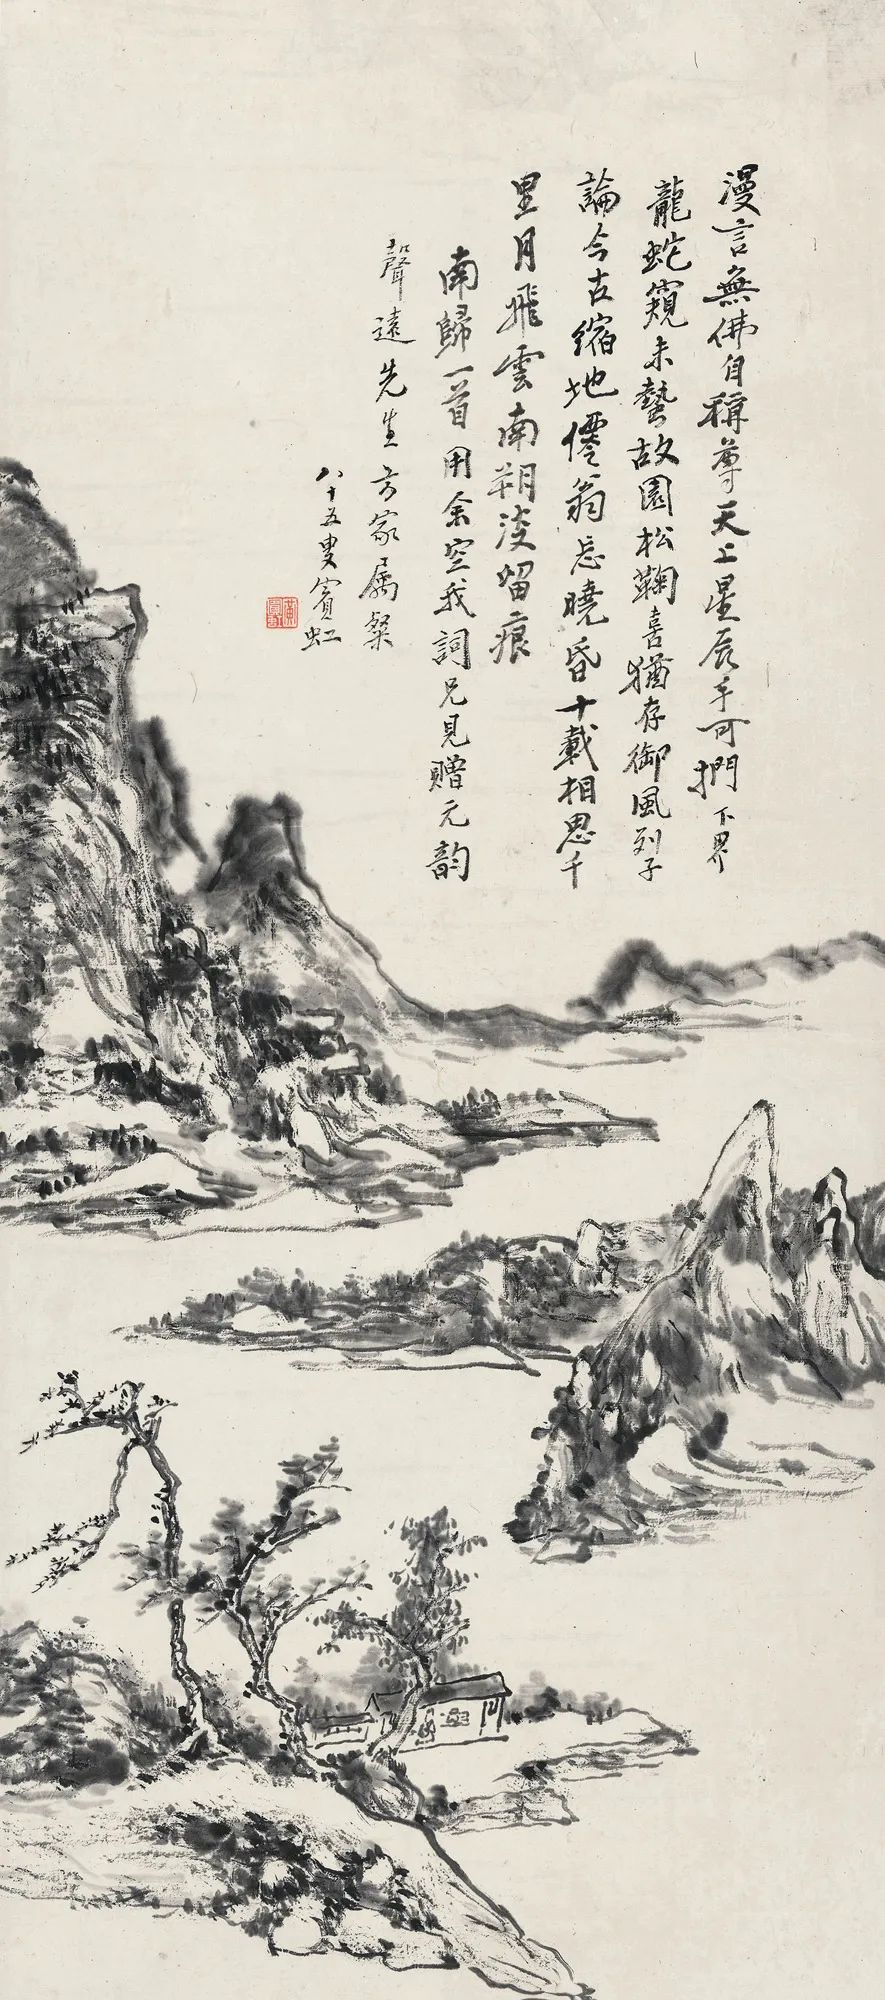 漫言無佛自稱尊天上星辰手可捫下界
龍蛇窺未蟄故園松菊喜猶存御風列子
論今古縮地僊翁忘曉昏十載相思千
里月飛雲南朔浚留痕
南歸一首用余空我詞兄見贈元韵
聲遠先生方家屬粲
八十五叟賓虹
黃賓虹